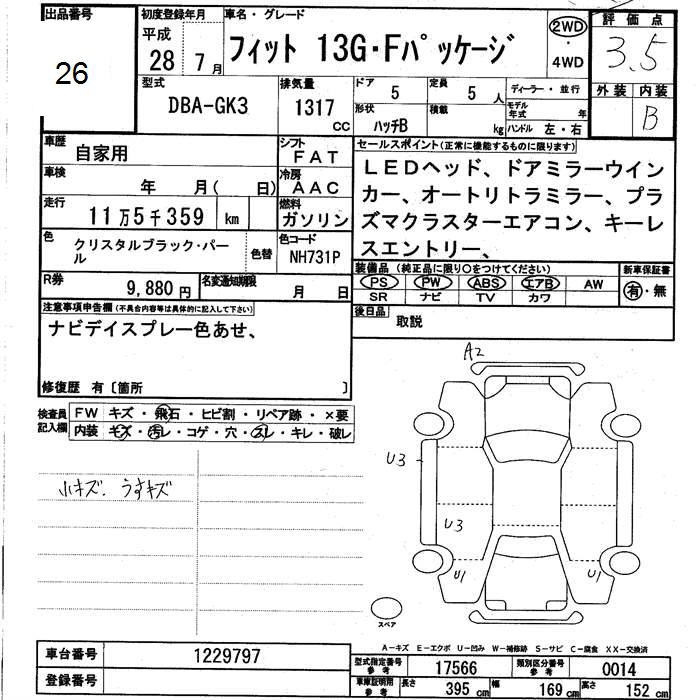 出品番号
26
初度登録年月
平成
28 7月
車名・グレード
フィット 13G・Fパッケージ
2WD
・
4WD
評価点
3.5
外装 内装
B
型式
DBA-GK3
排気量
1317
cc
ドア
5
定員
5 人
形状
ハッチB
積載
kg
ディーラー・並行
モデル年式 年
ハンドル 左・右
車歴
自家用
シフト
FAT
車検
年 月( 日)
冷房
AAC
走行
11万5千359 km
燃料
ガソリン
色
クリスタルブラック・パール
色替
色コード
NH731P
R券
9,880円
名変通知期限
月 日
セールスポイント(正常に機能するものに限ります)
LEDヘッド、ドアミラーウイン
カー、オートリトラミラー、プラ
ズマクラスターエアコン、キーレ
スエントリー、
装備品(純正品に限り○をつけてください)
PS PW ABS エアB AW
SR ナビ TV カワ
新車保証書
有・無
後日品
取説
注意事項申告欄(不具合内容等は具体的に記入して下さい)
ナビデイスプレー色あせ、
修復歴 有〔箇所 〕
検査員
記入欄
FW キズ・飛石・ヒビ割・リペア跡・×要
内装 キズ・汚レ・コゲ・穴・スレ・キレ・破レ
小キズ、うすキズ
A2
U3
U3
U1
U1
スペア
A−キズ E−エクボ U−凹み W−補修跡 S−サビ C−腐食 XX−交換済
車台番号
1229797
登録番号
型式指定番号
参考
17566
類別区分番号
参考
0014
車庫証明用
参考
長さ
395 cm
幅
169 cm
高さ
152 cm